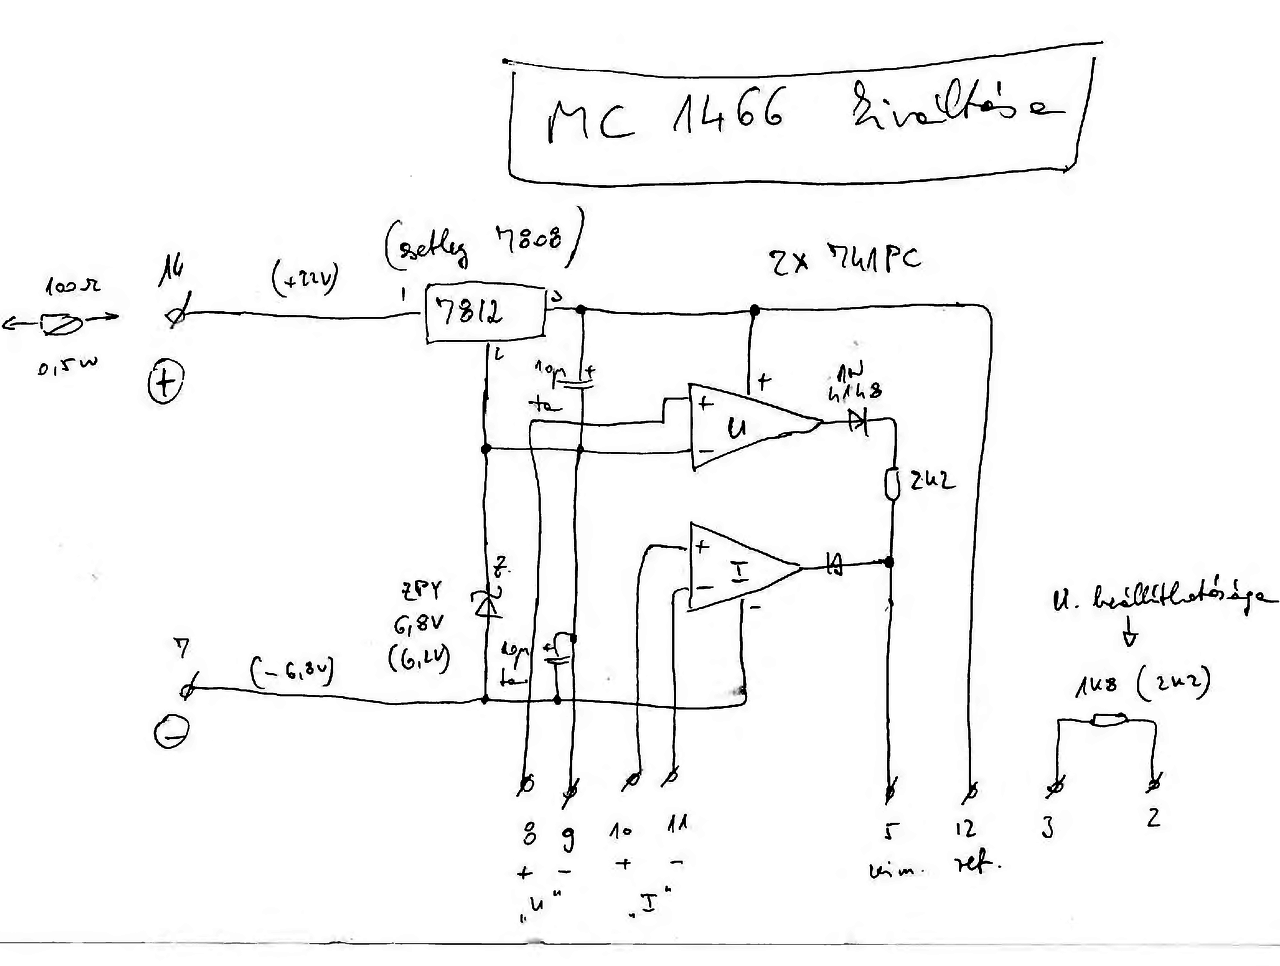 MC 1466 kiváltása
(esetleg 7808)
2x 741PC
100Ω
0,5W
14
(+22V)
+
1
7812
3
2
10µ
ta
+
+
U
-
+
1N
4148
2k2
+
I
-
-
Z.
ZPY
6,8V
(6,2V)
10µ
ta
+
7
(-6,8V)
-
U. beállíthatósága
1k8 (2k2)
8
9
10
11
5
12
3
2
+
-
+
-
kim.
ref.
„U"
„I"